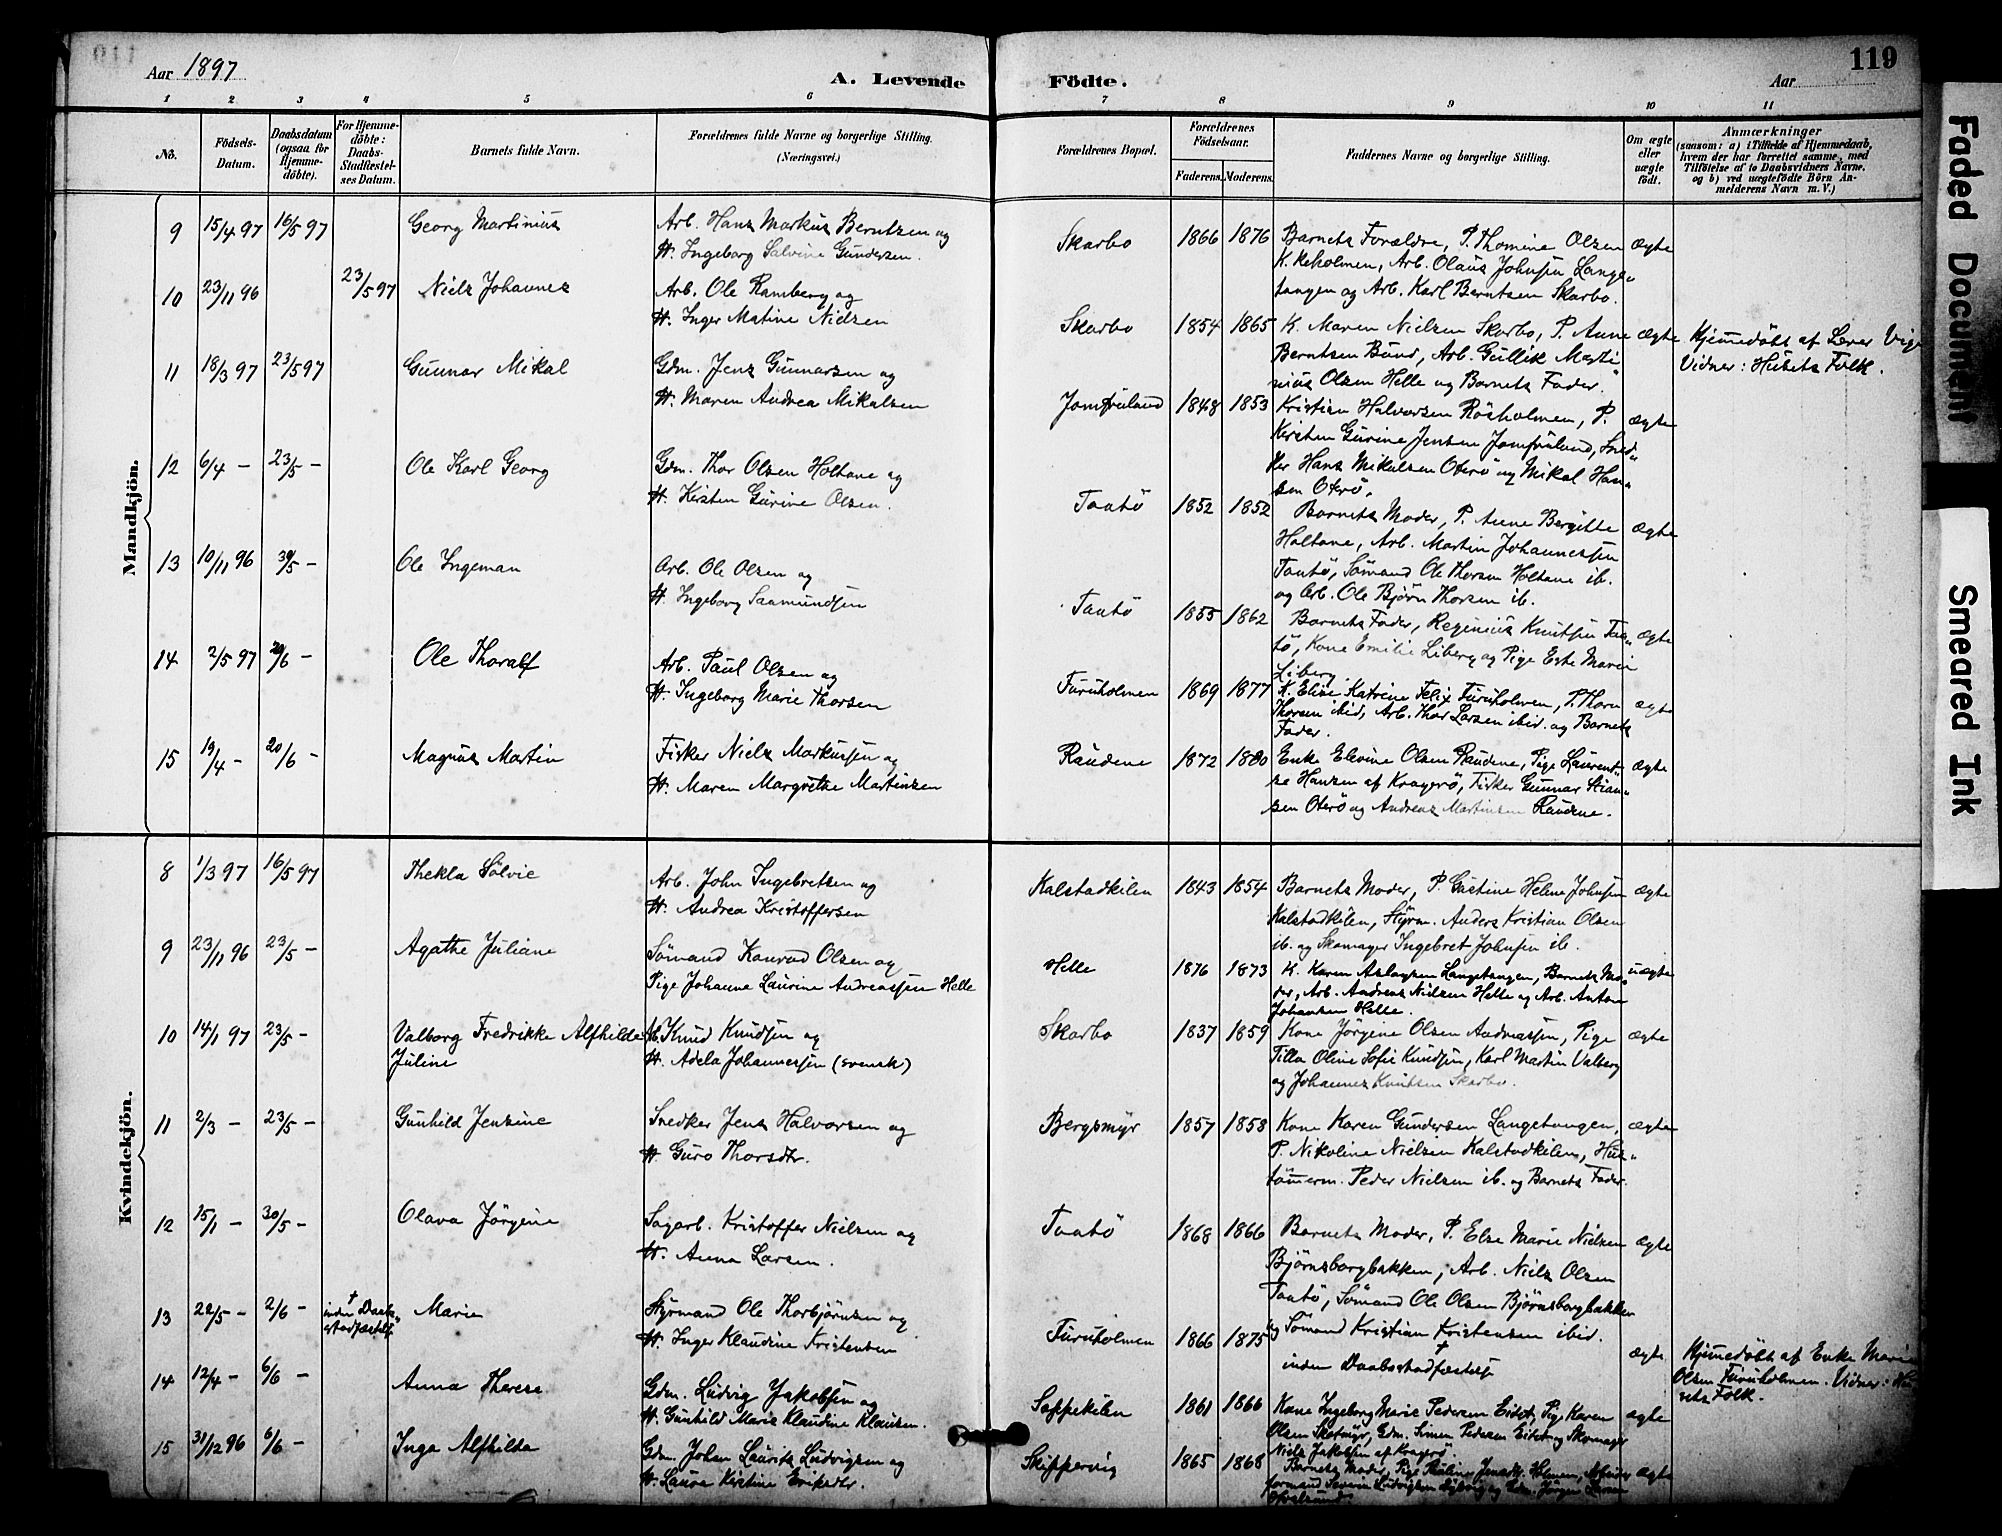 119
Aar 1897
A. Levende Födte.
Aar
1 2 3 4 5 6 7 8 9 10 11
No.
Födsels-Datum.
Daabsdatum (ogsaa för Hjemmedöbte).
For Hjemmedöbte: Daabs-Stadfæstelses Datum.
Barnets fulde Navn.
Forældrenes fulde Navne og borgerlige Stilling. (Næringsvei.)
Forældrenes Bopæl.
Forældrenes Födselsaar.
Faderens. Moderens.
Faddernes Navne og borgerlige Stilling.
Om ægte eller uægte födt.
Anmærkninger
(saasom: a) i Tilfælde af Hjemmedaab, hvem der har forrettet samme, med Tilföielse af to Daabsvidners Navne, og b) ved uægtefödte Börn Anmelderens Navn m. V.)
Mandkjön.
9 15/4 97 16/5 97 Georg Martinius
Arb. Hans Markus Berntsen og
H. Ingeborg Salvine Gundersen.
Skarbo 1866 1876
Barnets Forældre, P. Thomine Olsen ægte
Arb. Olaus Johnsen Lange-
tangen og Arb. Karl Berntsen Skarbo.
10 23/11 96 23/5 97 Niels Johannes
Arb. Ole Ramberg og
H. Inger Matine Nielsen
Skarbo 1854 1865
K. Maren Nielsen Skarbo, P. Anne ægte
Berntsen Bund, Arb. Gullik Marti-
nius Olsen Helle og Barnets Fader.
Hjemmedöbt af Lærer Vige
Vidner: Husets Folk.
11 18/3 97 23/5 97 Gunnar Mikal
Gdm. Jens Gunnarsen og
H. Maren Andrea Mikalsen
Jomfruland 1848 1853
Kristian Halvorsen Rösholmen, P. ægte
Kirsten Gurine Jensen Jomfruland, Sned-
ker Hans Mikalsen Oterö og Mikal Han-
sen Oterö.
12 6/4 - 23/5 - Ole Karl Georg
Gdm. Thor Olsen Holtane og
H. Kirsten Gurine Olsen.
Taatö 1852 1852
Barnets Moder, P. Anne Bergitte ægte
Holtane, Arb. Martin Johannessen
Taatö, Sömand Ole Thorsen Holtane ib.
og Arb. Ole Björn Thorsen ib.
13 10/11 96 30/5 - Ole Ingeman
Arb. Ole Olsen og
H. Ingeborg Saamundsen
Taatö 1855 1862
Barnets Fader, Reginius Knutsen Taa- ægte
tö, Kone Emilie Liberg og Pige Este Marie
Liberg.
14 2/5 97 /6 - Ole Thoralf
Arb. Paul Olsen og
H. Ingeborg Marie Thorsen
Furuholmen 1869 1877
K. Elise Katrine Felix Furuholmen, P. Thora ægte
Thorsen ibid, Arb. Thor Larsen ibid. og Barnets
Fader.
15 19/4 - 20/6 - Magnus Martin
Fisker Niels Markussen og
H. Maren Margrethe Martinsen
Raudene 1872 1880
Enke Elevine Olsen Raudene, Pige Laurent- ægte
se Hansen af Kragerö, Fisker Gunnar Stian-
sen Oterö og Andreas Martinsen Raudene.
Kvindekjön.
8 1/3 97 16/5 97 Thekla Sölvie
Arb. John Ingebretsen og
H. Andrea Kristoffersen
Kalstadkilen 1843 1854
Barnets Moder, P. Gustine Helene Johnsen ægte
Kalstadkilen, Styrm. Anders Kristian Olsen
ib. og Skomager Ingebret Johnsen ib.
9 23/11 96 23/5 - Agathe Juliane
Sömand Konrad Olsen og
Pige Johanne Laurine Andreassen Helle
Helle 1876 1873
K. Karen Aslagsen Langetangen, Barnets Mo- uægte
der, Arb. Andreas Nielsen Helle og Arb. Anton
Johansen Helle.
10 14/1 97 23/5 - Valborg Fredrikke Alfhilde
Juline
Arb. Knud Knudsen og
H. Adela Johannessen (svensk)
Skarbo 1837 1859
Kone Jörgine Olsen Andreassen, Pige ægte
Tilla Oline Sofie Knudsen, Karl Martin Valberg
og Johannes Knutsen Skarbo.
11 2/3 - 23/5 - Gunhild Jensine
Snedker Jens Halvorsen og
H. Guro Thorsdtr.
Bergsmyr 1857 1858
Kone Karen Gundersen Langetangen, ægte
P. Nikoline Nielsen Kalstadkilen, Hus-
tömmerm. Peder Nielsen ib. og Barnets Fader.
12 15/1 - 30/5 - Olava Jörgine
Sagarb. Kristoffer Nielsen og
H. Anna Larsen.
Taatö 1868 1866
Barnets Moder, P. Else Marie Nielsen ægte
Björnsborgbakken, Arb. Niels Olsen
Taatö, Sömand Ole Olsen Björnsborgbakken
og Sömand Kristian Kristensen ibid.
13 22/5 - 2/6 - † inden Daabs-
stadfæstelse
Marie
Styrmand Ole Thorbjörnsen og
H. Inger Klaudine Kristensen
Furuholmen 1866 1875
†
inden Daabsstadfæstelse ægte
Hjemmedöbt af Enke Maria
Olsen Furuholmen. Vidner: Hu-
sets Folk.
14 12/4 - 6/6 - Anna Therese
Gdm. Ludvig Jakobsen og
H. Gunhild Marie Klaudine Klausen.
Soppekilen 1861 1866
Kone Ingeborg Marie Pedersen Eidet, Pige Karen ægte
Olsen Slotmyr, Gdm. Simen Pedersen Eidet og Skomager
Niels Jakobsen af Kragerö.
15 31/12 96 6/6 - Inga Alfhilda
Gdm. Johan Laurits Ludvigsen og
H. Laura Kirstine Eriksdtr.
Skippervig 1865 1868
Barnets Moder, Pige Pauline Holmen, Arbeider ægte
formand Severin Ludvigsen og Gdm. Jörgen Larsen
Faded Document
Smeared Ink